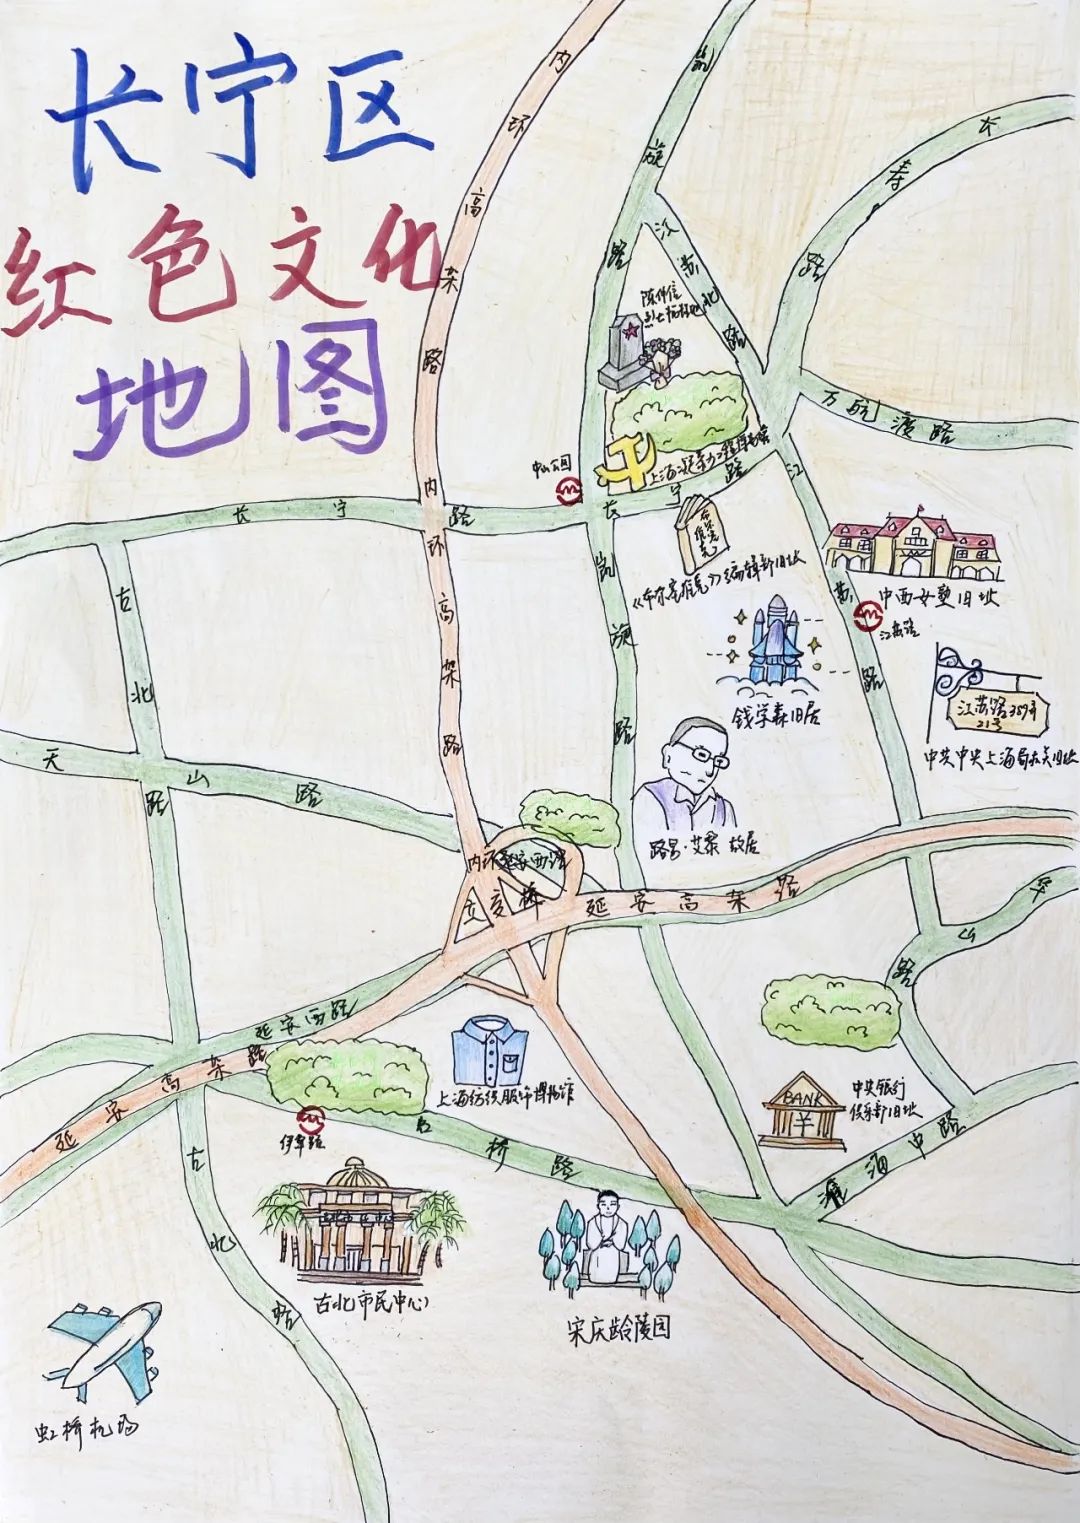 长宁区
红色文化
地图
内环高架路
凯旋路
长寿路
江苏北路
陈伟信
烈士
万航渡路
上海凝聚力工程博物馆
中山公园
长宁路
长宁路
江苏路
内环高架路
凯旋路
布尔塞维克
《布尔塞维克》编辑部旧址
中西女塾旧址
江苏路
古北路
钱学森旧居
江苏路389弄
21号
中共中央上海局机关旧址
天山路
路易·艾黎 故居
内环延安西路
立交桥
延安高架路
华山路
延安西路
延安高架路
上海纺织服饰博物馆
BANK
中央银行
俱乐部旧址
伊犁路
虹桥路
淮海中路
古北路
古北市民中心
宋庆龄陵园
虹桥机场